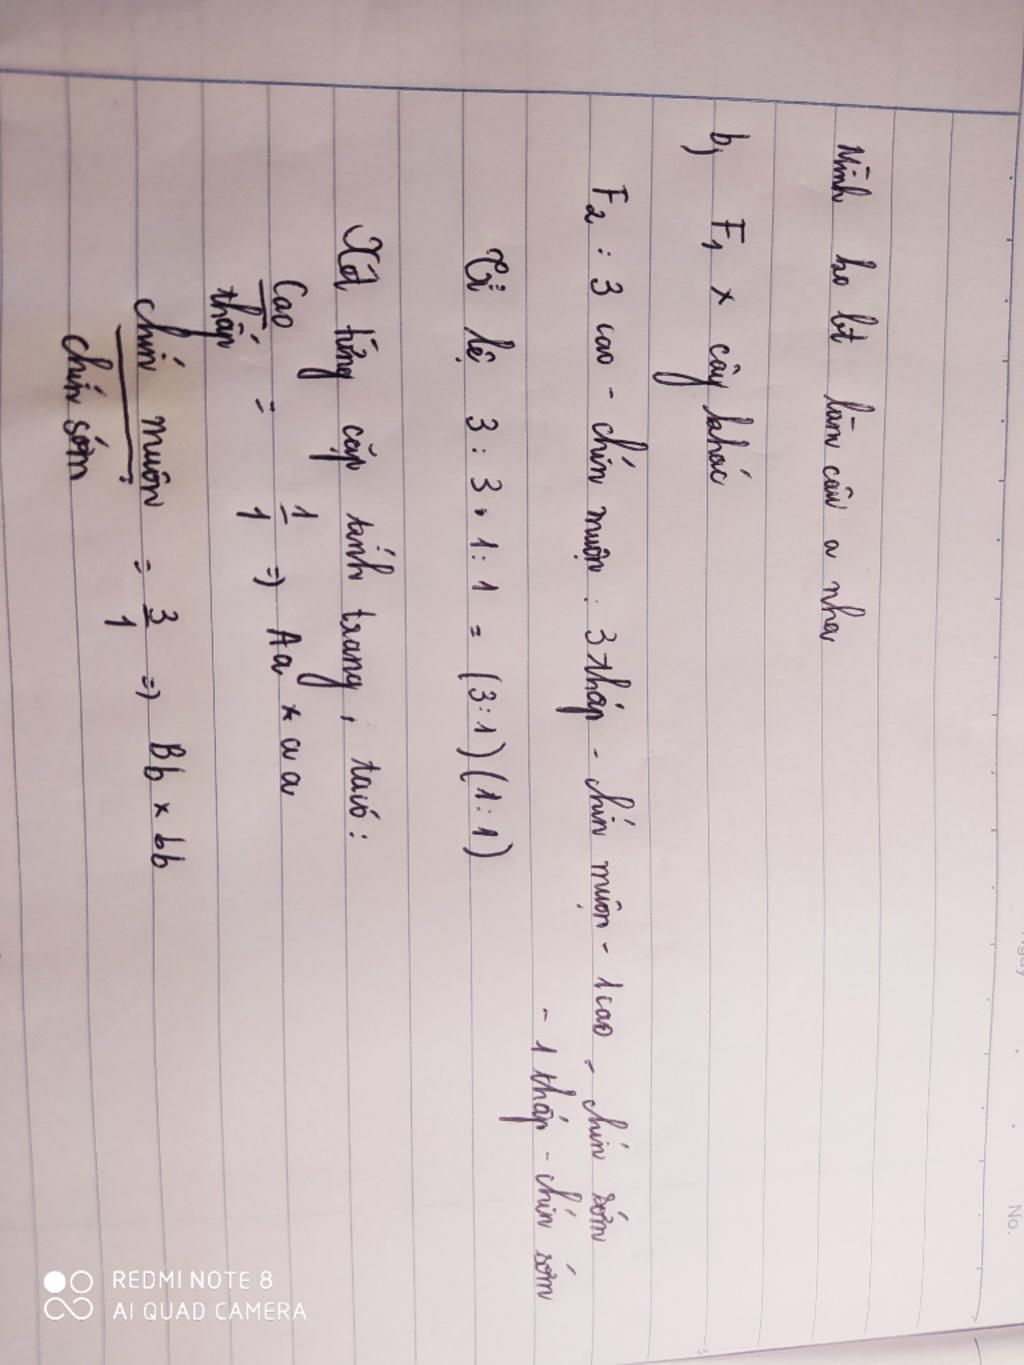 Mình ko bt làm câu a nha
b, F1 x cây khác
F2 : 3 cao - chín muộn : 3 thấp - chín muộn - 1 cao - chín sớm
- 1 thấp - chín sớm
Tỉ lệ 3 : 3 : 1 : 1 = (3:1)(1:1)
Xét từng cặp tính trạng, ta có :
Cao / thấp = 1/1 => Aa x aa
chín muộn / chín sớm = 3/1 => Bb x bb
REDMI NOTE 8
AI QUAD CAMERA
Ngày
No.